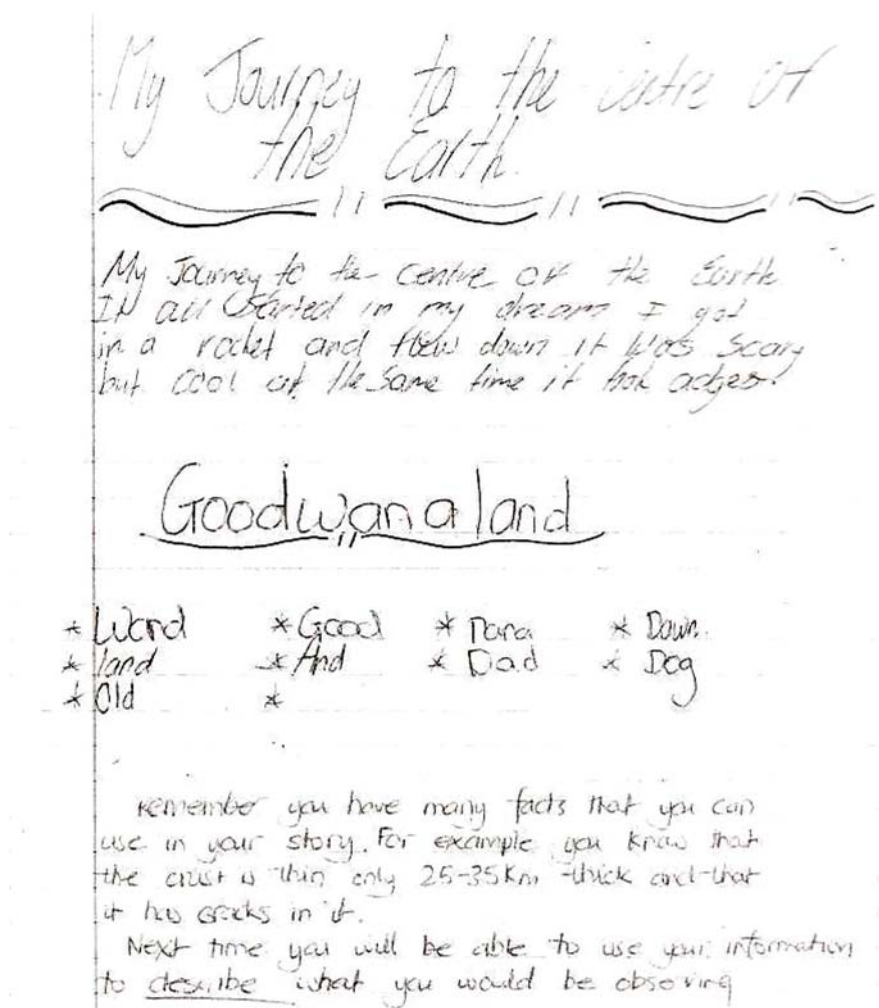 My Journey to the centre of
the Earth.
My Journey to the centre of the Earth
It all started in my dream I got
in a rocket and flew down it was scary
but cool at the same time it took adges.
Goodwanaland
* Word * Good * Dana * Down.
* land * And * Dad * Dog
* Old *
Remember you have many facts that you can
use in your story. For example you know that
the crust is thin only 25-35Km thick and that
it has cracks in it.
Next time you will be able to use your information
to describe what you would be observing